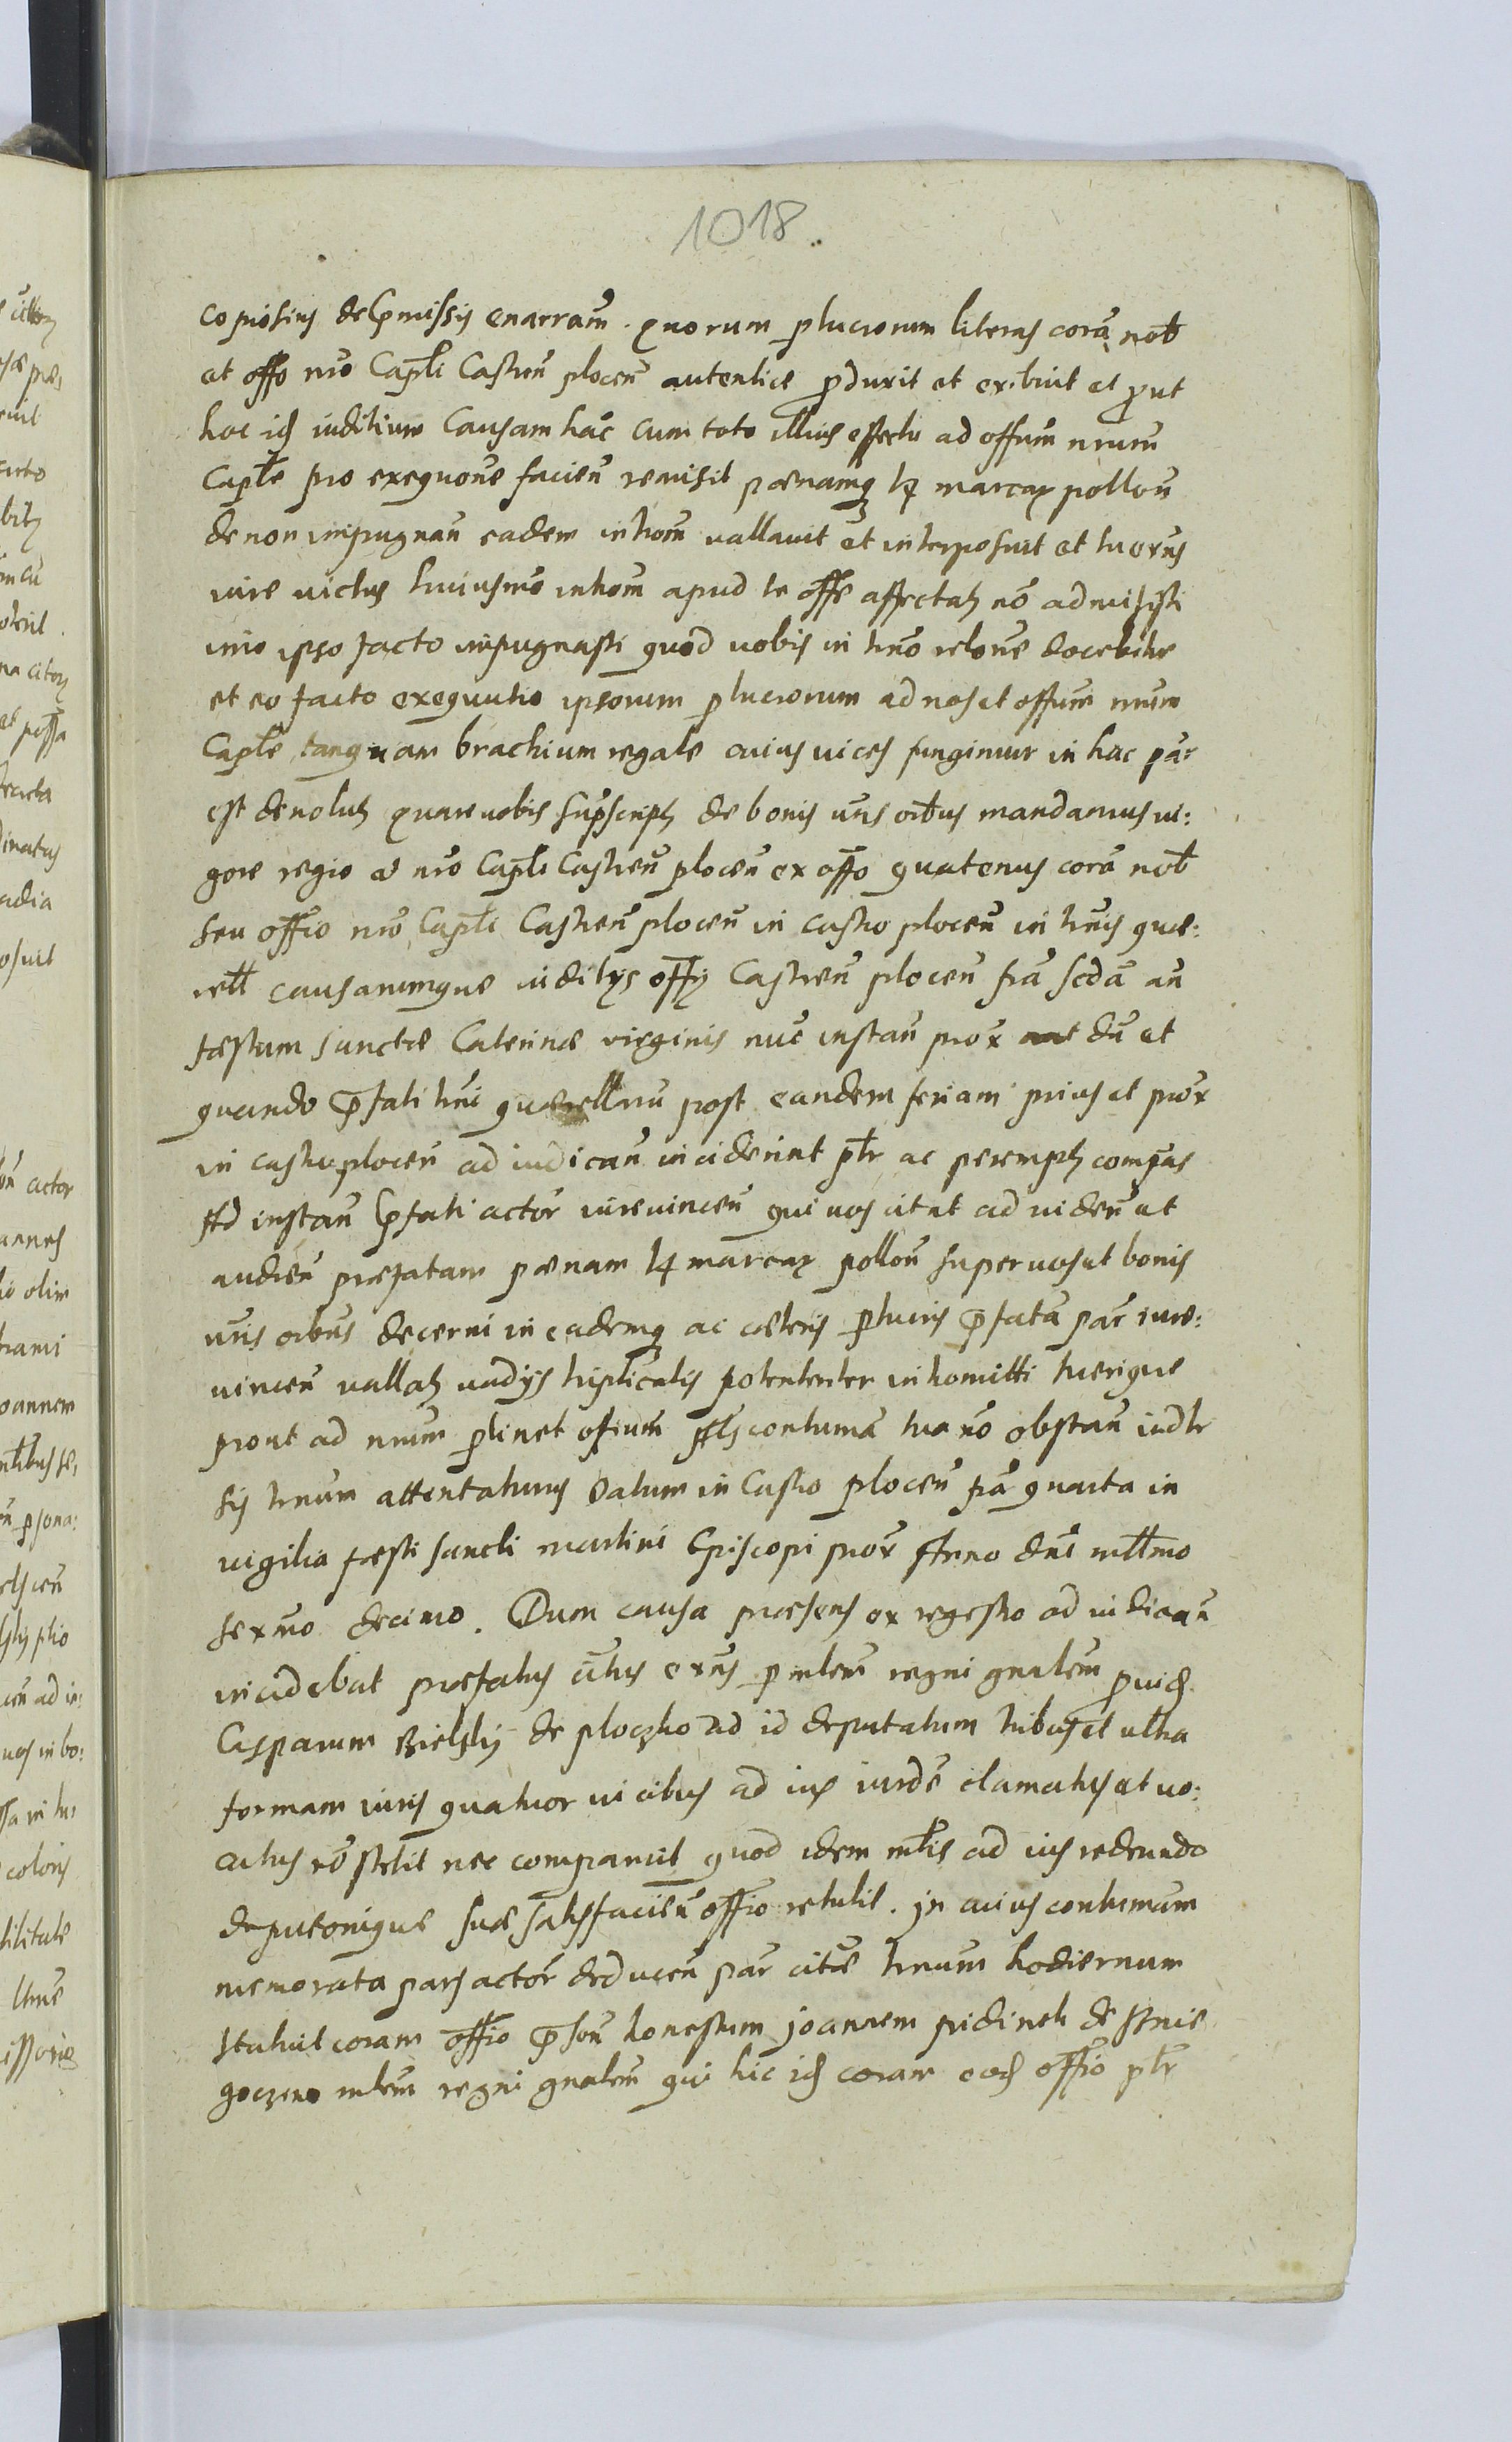 1018.
copiosius de p̄missis enarrañ. quorum p̱lucrorum literas corā nob̄
et offo nr̄o Capłi Castreñ ploceñ autentice ꝓduxit et exibuit et ꝓut
hoc id iuditium Causam hāc cum toto illius effectu ad offm̄ nrum
Capłe pro exequōne facieñ remisit pœnamq marcar polloñ
de non impugnañ eadem introm̄ vallavit et interposuit et tu exñs
iure victus huiusmō introm̄ apud te offe affectat nō admisisti
imo ipso facto impugnasti quod vobis in trño relōne docebitur
et eo facto exequutio ipsorum p̱lucrorum ad nos et offm̄ nrum
Capłe tanquam brachium regale cuius vices fungimur in hac par
est devoluta quare vobis supscript de bonis vr̄is oībus mandamus vi:
gore regio ac nr̄o Capłi Castreñ ploceñ ex offo quatenus corā nob̄
seu offio nr̄o Capłi Castreñ ploceñ in castro ploceñ in trñis que:
rełł causarumque iuditys offy Castreñ ploceñ frā scdā añ
fœstum sanctæ Caterinæ virginis nūc instañ prox dū et
quando p̄fati trñi quærellarū post eandem feriam prius et prox
in castro ploceñ ad iudicañ inciderint ptr ac peremptr compas
Ad instañ p̄fati actor̄ iurevinceñ qui vos citat ad videñ et
audieñ præfatam pœnam marcar polloñ super vos et bonis
vr̄is oībus decerni in eademq ac cæteris p̱lucris p̄fatā par iure:
vinceñ vallat vadys triplicatis potententer intromitti tuerique
prout ad nrum p̱tinet ofium Alš contumā tua nō obstañ iudtr
sis trñum attentaturus Datum in Castro ploceñ frā quarta in
vigilia fœsti sancti martini Episcopi prox Anno dñi młłmo
sexmo decimo. Dum causa præsens ex regestro ad iudicañ
incidebat præfatus cit̄us exñs p̱ mlem̄ regni gnalem̄ ꝓvid
Casparum Bielsky de ploczko ad id deputatum tribus et ultra
formam iuris quatuor vicibus ad ius iurdē clamatus et vo:
catus nō stetit nec comparuit quod idem młis ad ius redeundo
deputonique suæ satisfacieñ offio retulit. In cuius contumam
memorata pars actor̄ deduceñ par citæ trñum hodiernum
statuit coram offio p̄señ honestum Joannem pidinek de Snie
goczyno mlem̄ regni gnalem̄ qui hic id coram eod offio ptr